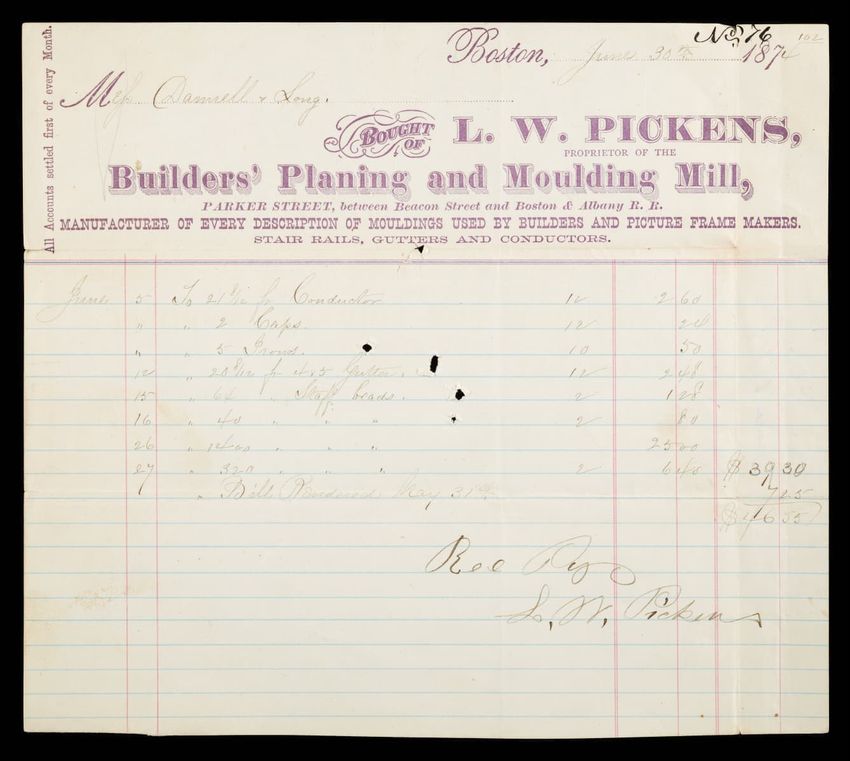 No 76
102
Boston, June 30th 1874
Mess Damrell & Long.
All Accounts settled first of every Month.
BOUGHT OF L. W. PICKENS,
PROPRIETOR OF THE
Builders' Planing and Moulding Mill,
PARKER STREET, between Beacon Street and Boston & Albany R. R.
MANUFACTURER OF EVERY DESCRIPTION OF MOULDINGS USED BY BUILDERS AND PICTURE FRAME MAKERS.
STAIR RAILS, GUTTERS AND CONDUCTORS.
June 5 To 21 8/12 ft Conductor 12 2 60
" " 2 Caps. 12 24
" " 5 Irons. 10 50
12 " 20 8/12 ft 4x5 Gutter. 12 2 48
15 " 64 " Staff beads. 2 1 28
16 " 40 " " " 2 80
26 " 1400 " " " 25 00
27 " 320 " " " 2 6 40 $ 39 30
" Bill Rendered May 31st 7 25
$ 46 55
Rec Pay
L. W. Pickens